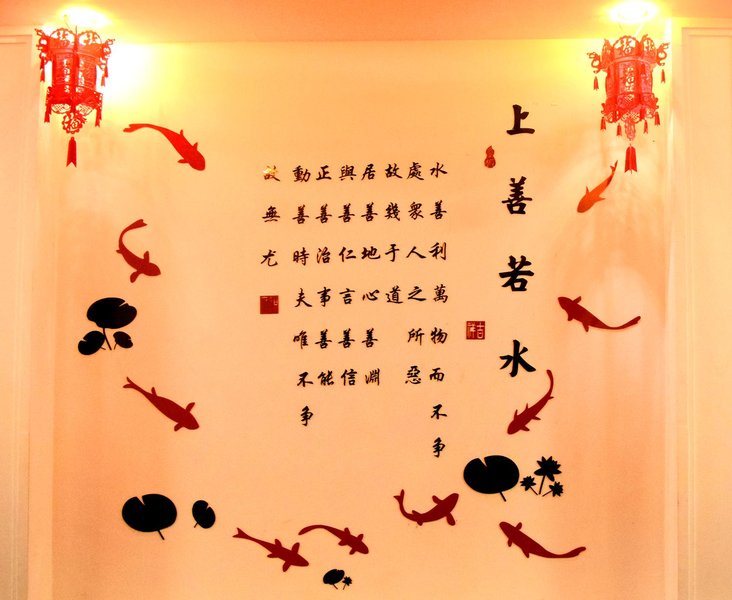 上善若水
吉祥
水善利萬物而不争
處衆人之所惡
故幾于道
居善地心善淵
與善仁言善信
正善治事善能
動善時夫唯不争
故無尤